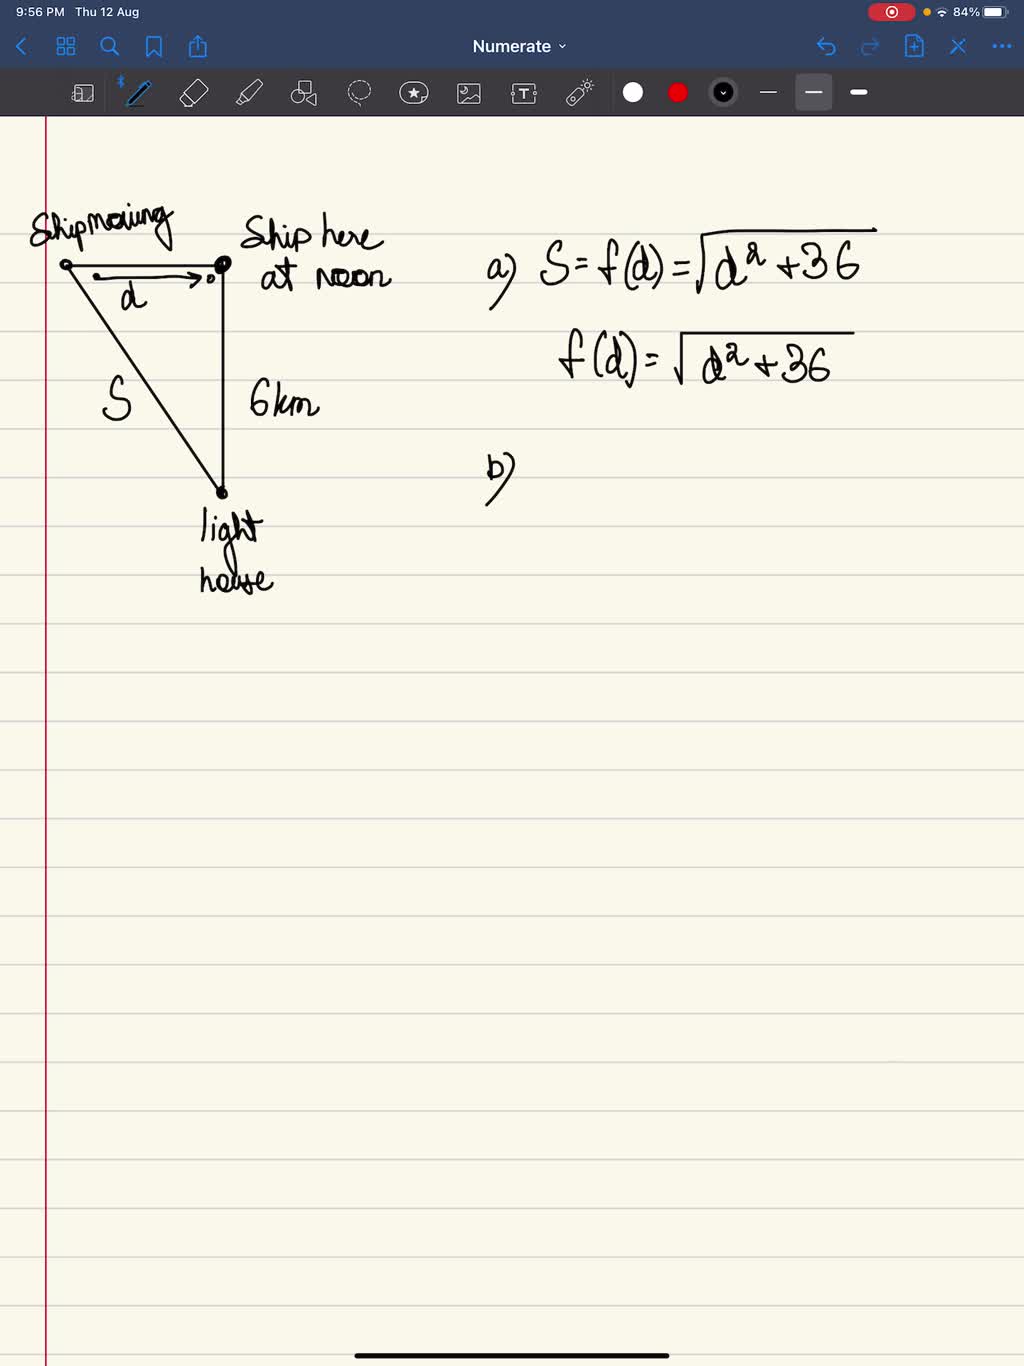 9:56 PM Thu 12 Aug
84%
Numerate
T
Ship moving
Ship here
at noon
d
S
6km
light
house
a) S = f(d) = √d² + 36
f(d) = √d² + 36
b)